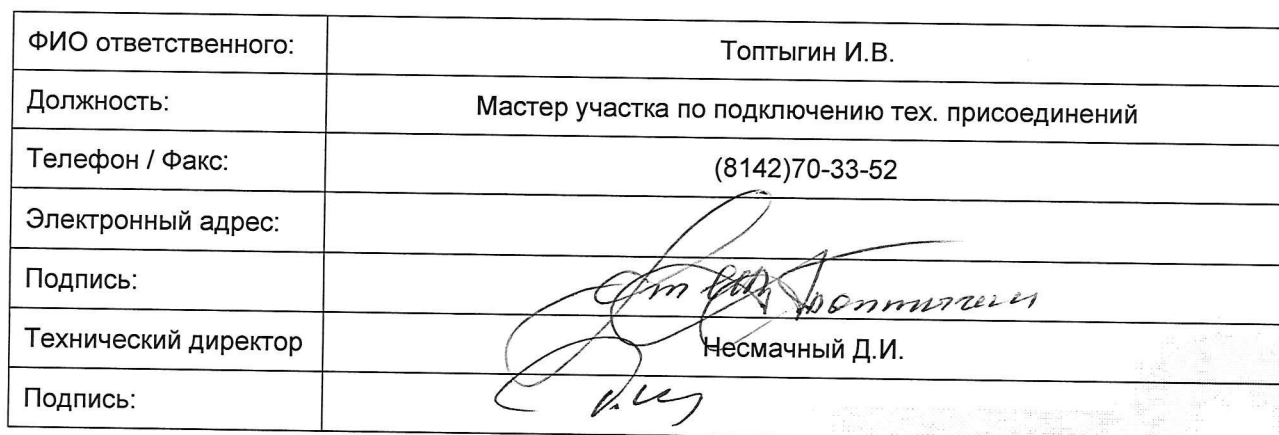 ФИО ответственного: Топтыгин И.В.
Должность: Мастер участка по подключению тех. присоединений
Телефон / Факс: (8142)70-33-52
Электронный адрес:
Подпись:
Технический директор Несмачный Д.И.
Подпись: